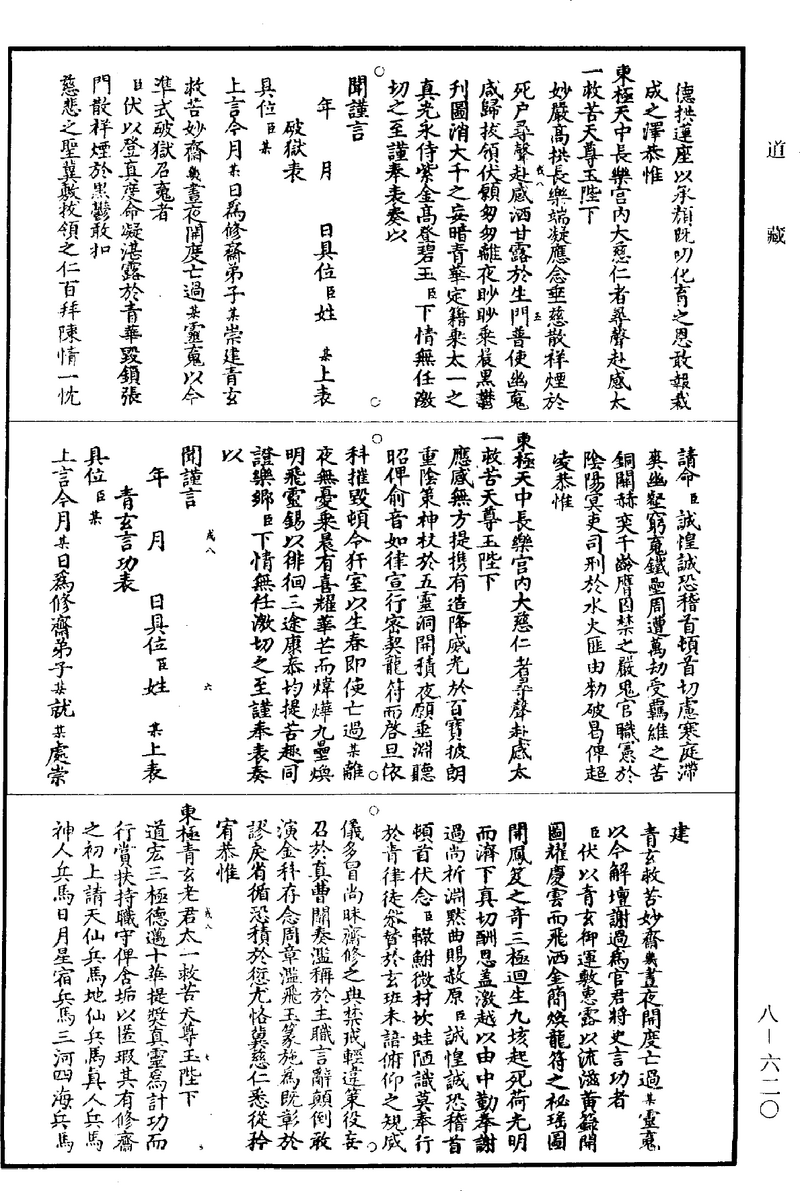 道藏
德拱蓮座以承顏既叨化育之恩敢報栽
成之澤恭惟
東極天中長樂宮内大慈仁者尋聲赴感太
一救苦天尊玉陛下
妙嚴高拱長樂端凝應念垂慈散祥煙於
死户尋聲赴感洒甘露於生門普使幽䰟
咸歸拔領伏願匆匆離夜眇眇乘晨黒鬱
刋圖消大千之妄暗青華定籍乘太一之
真光永侍紫金髙登碧玉臣下情無任激
切之至謹奉表奏以
聞謹言
年 月 日具位臣姓 某上表
破獄表
具位臣某
上言今月某日爲修齋弟子某崇建青玄
救苦妙齋幾晝夜開度亡過某靈䰟以今
準式破獄召䰟者
臣伏以登真度命凝湛露於青華毀鎖張
門散祥煙於黒鬱敢扣
慈悲之聖冀敷拔領之仁百拜陳情一忱
請命臣誠惶誠恐稽首頓首切慮寒庭滯
爽幽壑窮䰟鐵壘周遭萬劫受羈維之苦
銅關赫奕千齡膺囚禁之嚴鬼官職憲於
陰陽冥吏司刑於水火匪由勑破曷俾超
凌恭惟
東極天中長樂宮内大慈仁者尋聲赴感太
一救苦天尊玉陛下
應感無方提携有造降威光於百寶披朗
重陰策神杖於五靈洞開積夜願垂淵聽
昭俾俞音如律宣行密契龍符而啓旦依
科摧毀頓令犴室以生春即使亡過某離
夜無憂乘晨有喜耀華芒而煒燁九壘煥
明飛靈錫以徘徊三途康泰均提苦趣同
證樂郷臣下情無任激切之至謹奉表奏
以
聞謹言
年 月 日具位臣姓 某上表
青玄言功表
具位臣某
上言今月某日爲修齋弟子某就某處崇
建
青玄救苦妙齋幾晝夜開度亡過某靈䰟
以今解壇謝過爲官君將吏言功者
臣伏以青玄御運敷惠露以流滋黄籙開
圖耀慶雲而飛洒金簡煥龍符之秘瑶圖
開鳳笈之奇三極迴生九垓起死荷光明
而濟下真切酬恩盖激越以由中勤拳謝
過尚祈淵黙曲賜赦原臣誠惶誠恐稽首
頓首伏念臣轍鮒微材坎蛙陋識莫奉行
於青律徒忝替於玄班未語俯仰之規威
儀多冒尚昧齋修之典禁戒輕違策役妄
召於真曹關奏濫稱於主職言辭顛倒敢
演金科存念周章濫飛玉篆施爲既彰於
謬戾省循恐積於愆尤恪冀慈仁悉從矜
宥恭惟
東極青玄老君太一救苦天尊玉陛下
道宏三極德邁十華提奬真靈爲計功而
行賞扶持職守俾舍垢以匿瑕其有修齋
之初上請天仙兵馬地仙兵馬真人兵馬
神人兵馬日月星宿兵馬三河四海兵馬
八—六二〇